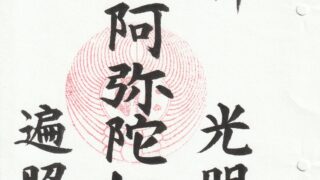 光明
阿弥陀
遍照